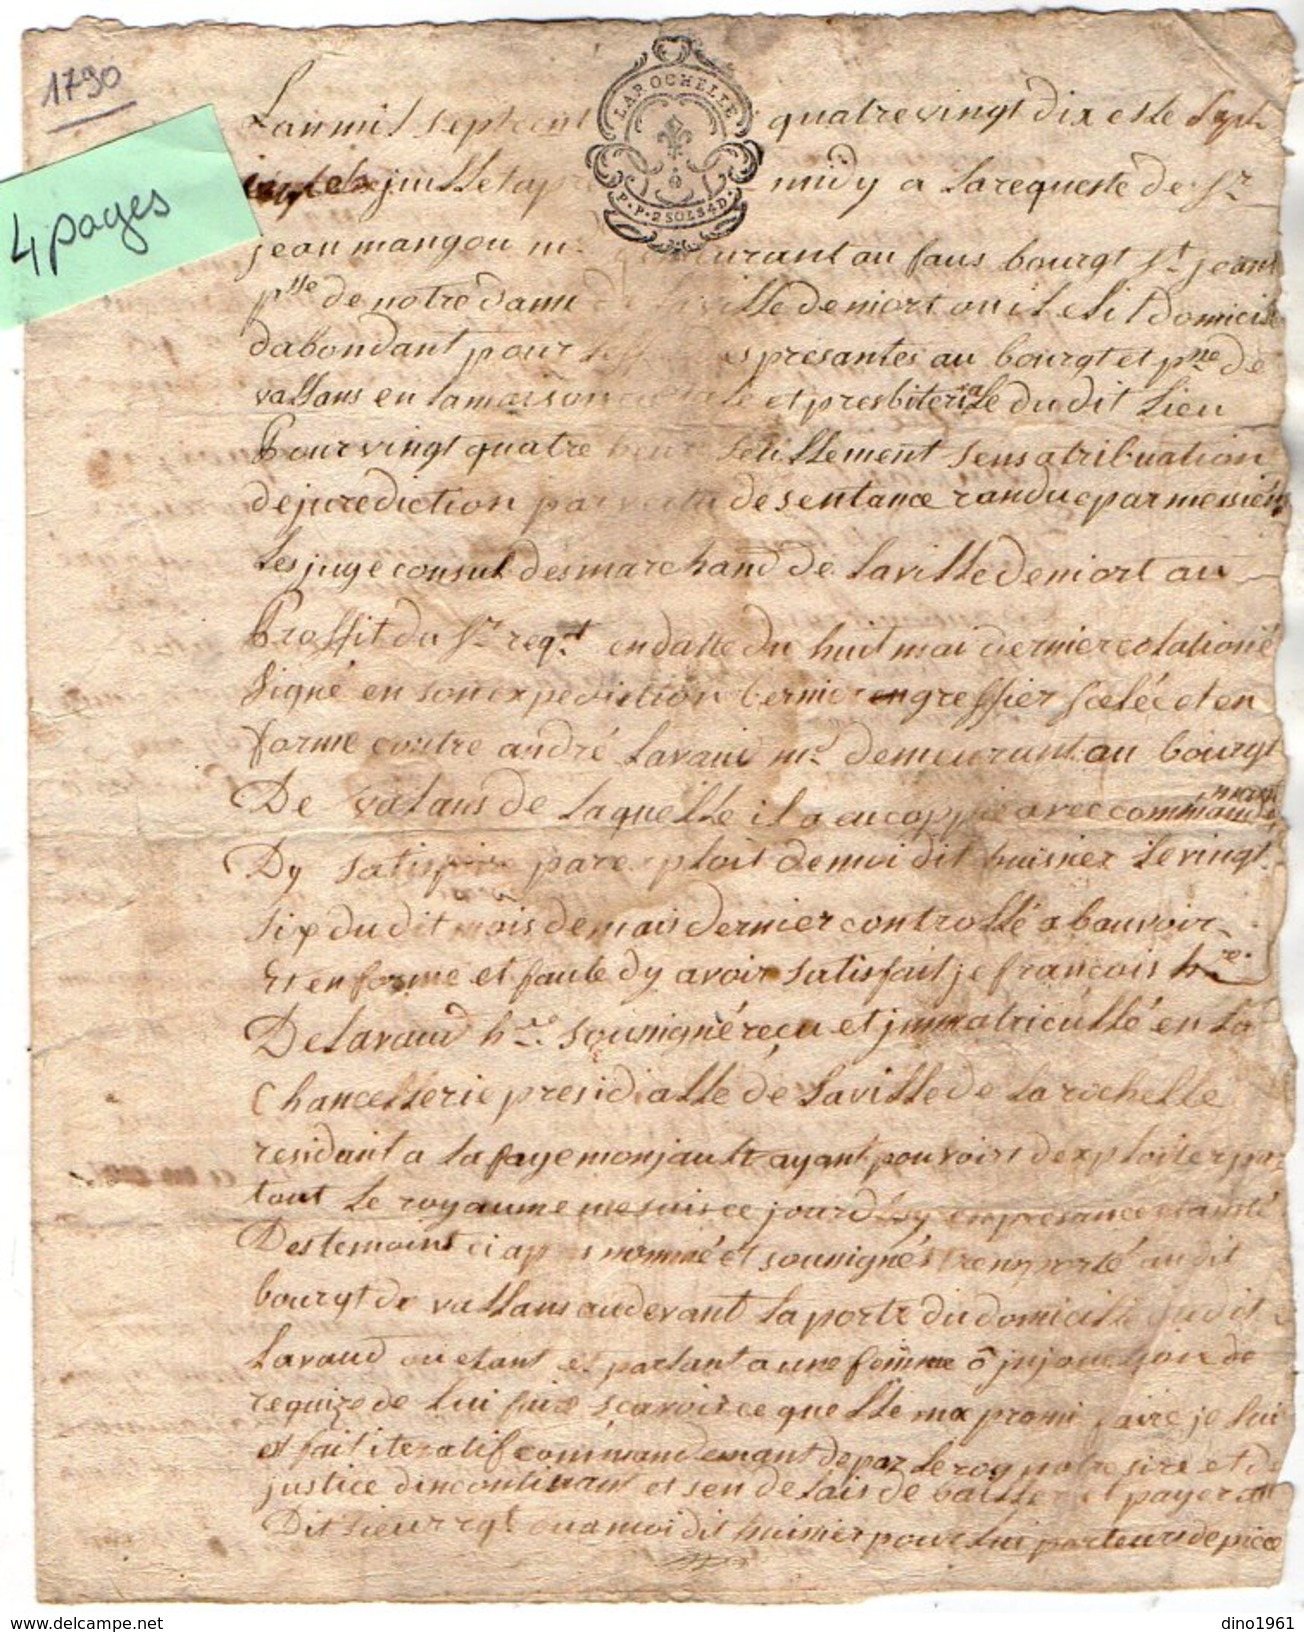 1790
4 pages
LAROCHELLE
P.P. 2 SOLS 4 D.
Lanmil septcent quatrevingt dix est le Sept
juillet apr midy a larequeste de Sr
jean mangou md demeurant au faus bourgt St jean
psse de notre dame de la ville deniort ou il elit domicile
dabondant pour les presantes au bourgt et pne de
vallans en lamaison curiale et presbiterialle du dit lieu
Pour vingt quatre heures seullement sens atribuation
dejurediction par vertu de sentance randue par messieurs
Les juge consul des marchand de laville deniort au
Proffit du Sr reqt en datte du huit mai dernier
Signé en son expediction bernier greffier scelée et en
forme contre andré Lavaud md demeurant au bourgt
De valans de laquelle il a eu coppie avec commandement
Dy satisfaire par exploit de moi dit huisier le vingt
six du dit mois de mais dernier controllé a bauvoir
Et en forme et faute dy avoir satisfait je francois hre
Delavaud hre sousigné reçu et jmmatricullé en la
Chancellerie presidialle de laville de larochelle
residant a la foye monjault ayant pouvoir dexploiter par
tout le royaume me suis ce jourdhuy en presance et
Des temoins ci apres nommé et sousignés tremsporté au dit
bourgt de vallans au devant la porte du domicile du dit
Lavaud ou etant et parlant a une femme ô jnjonction de
requize de lui faire scavoir ce quelle ma promi faire je lui
est fait iteratif commandemant de par le roy notre sire et de
justice dincontinant et sen delais de bailler et payer au
Dit sieur rqt ou a moi dit huisier pour lui porteur de pice
dino1961